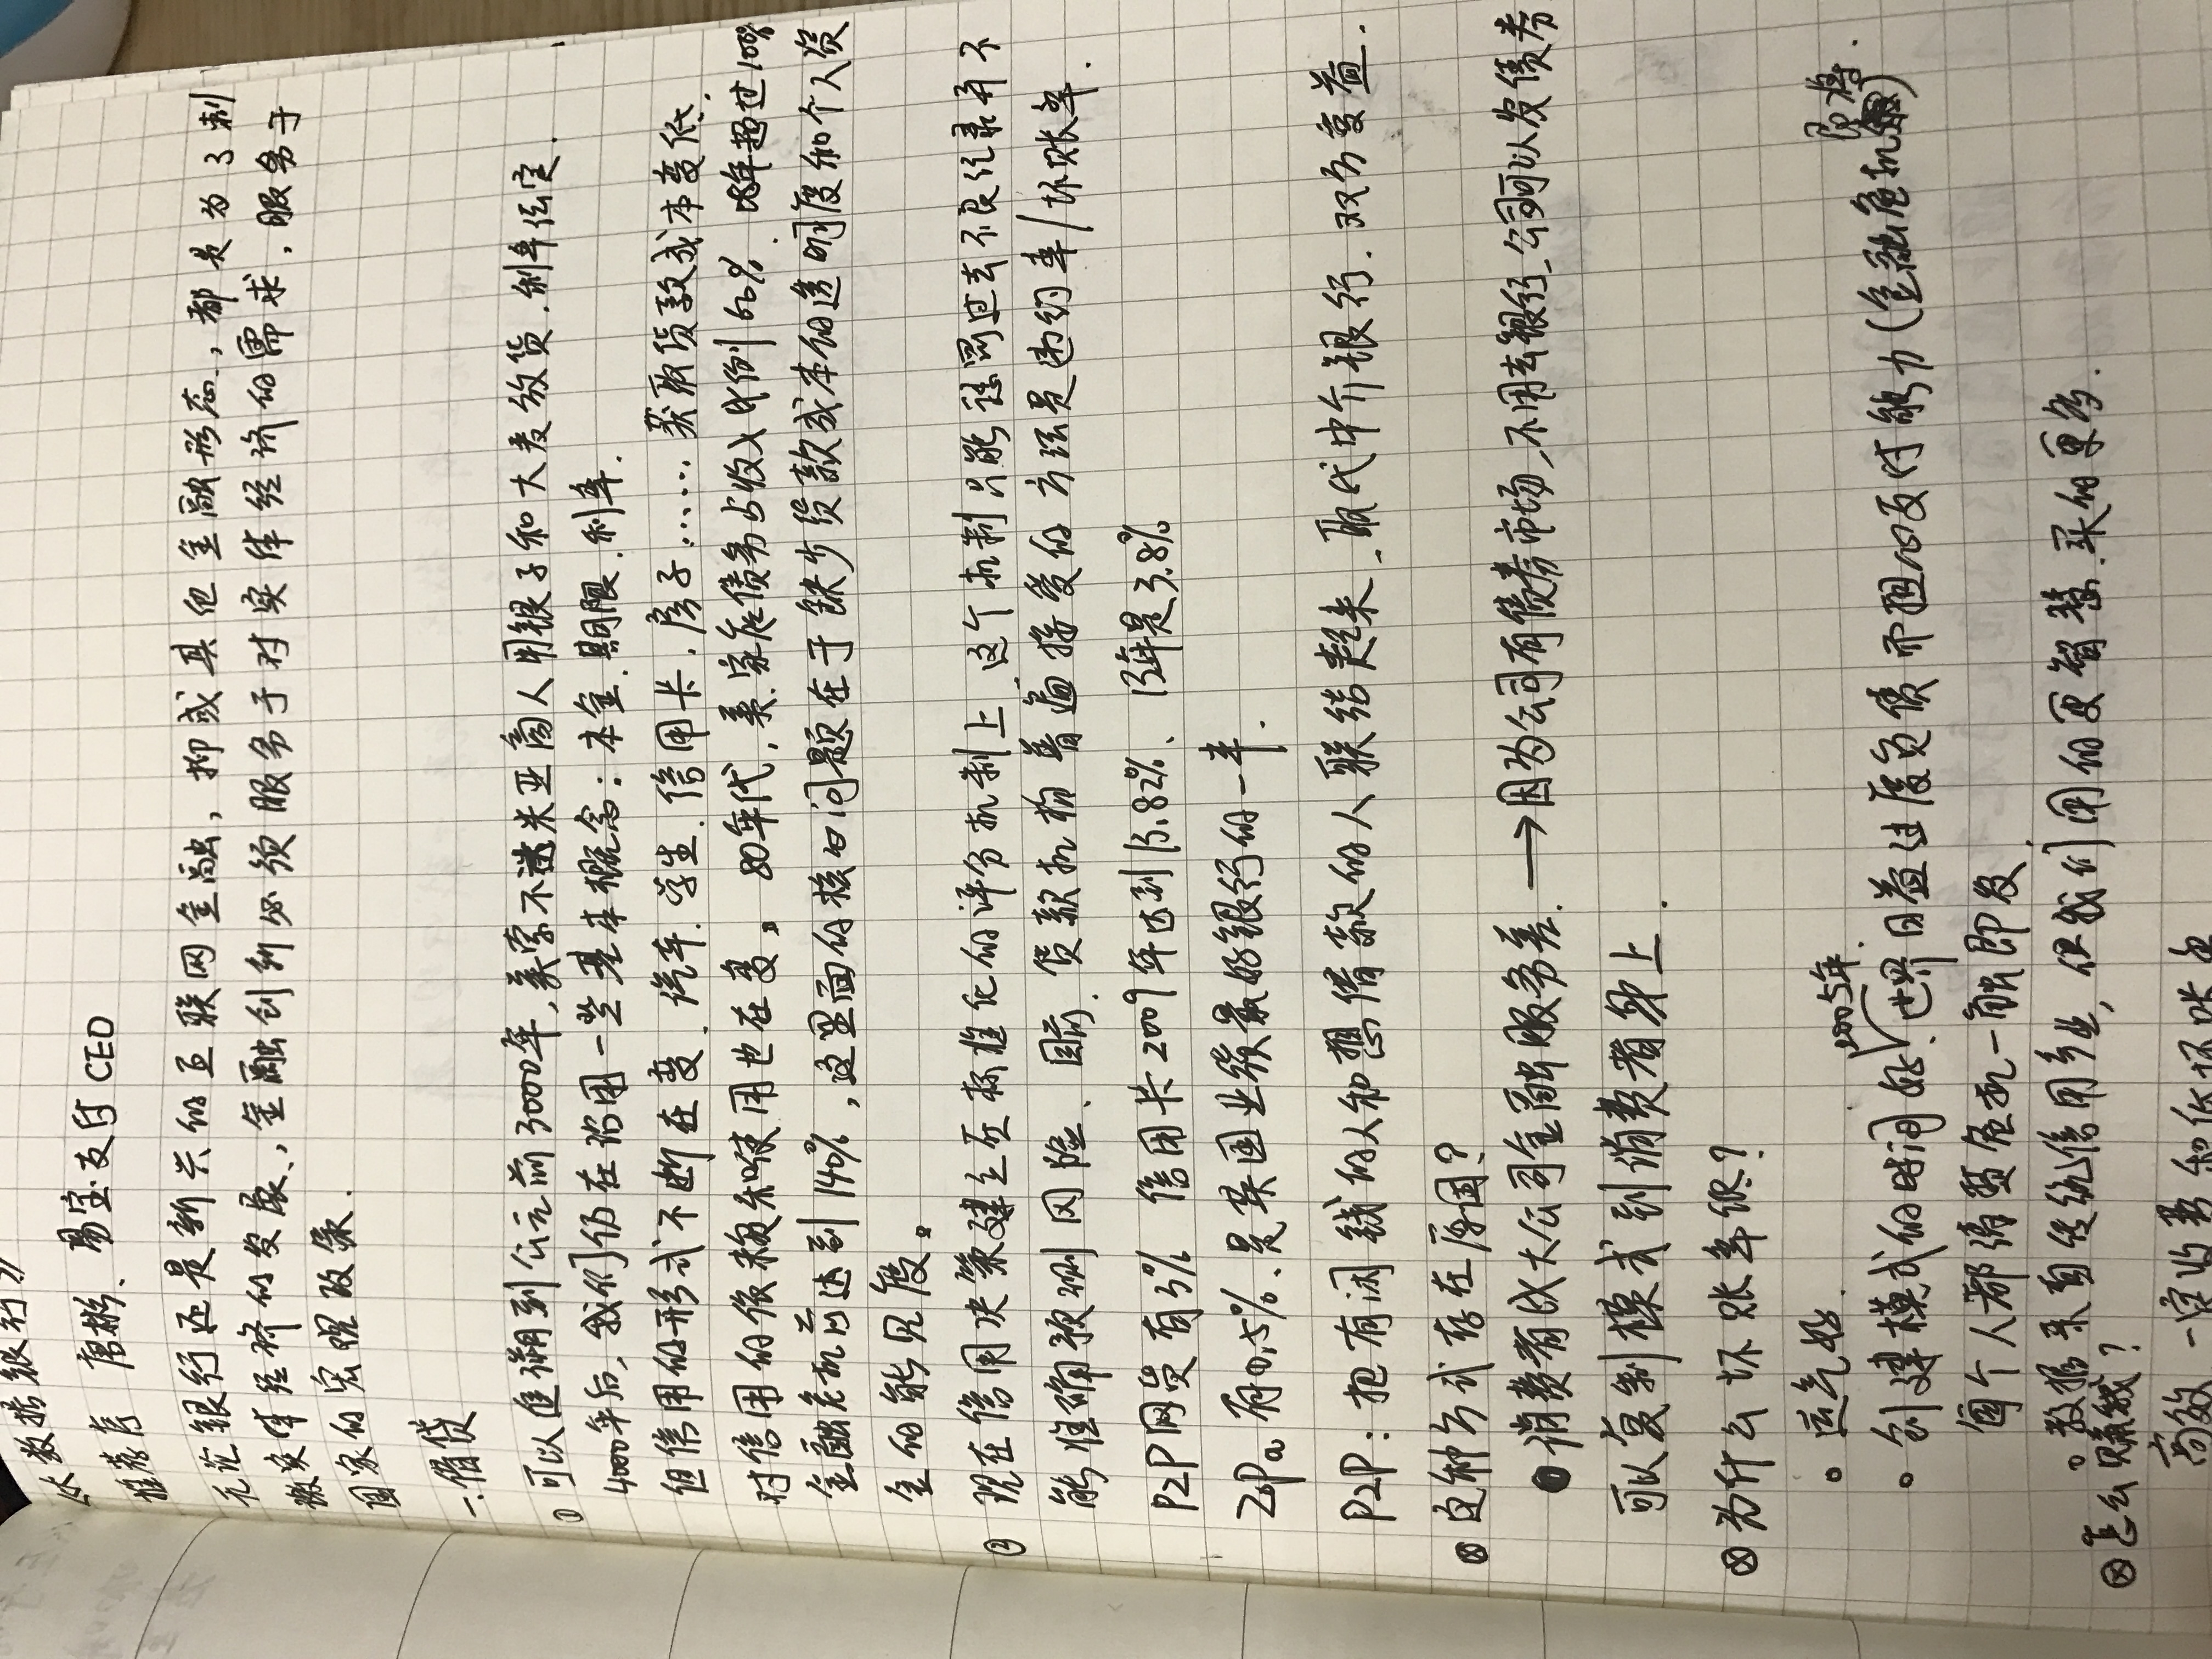 《大数据银行》
推荐序 唐彬.易宝支付CEO
无论银行还是新兴的互联网金融,抑或其他金融形态,都是为了刺
激实体经济的发展,金融创新必须服务于对实体经济的需求,服务于
国家的宏观政策.
一.借贷
① 可以追溯到公元前3000年,美索不达米亚商人用银子和大麦放贷.利率恒定.
4000年后,我们仍在沿用一些基本概念:本金.期限.利率.
但信用的形式不断在变.汽车.学生.信用卡.房子……获取贷款成本变低.
对信用的依赖和使用也在变。80年代,美家庭债务占收入比例60%.08年超过100%
金融危机前已达到140%,这里面的核心问题在于缺少贷款成本的透明度和个人资
金的能见度。
② 现在信用决策建立在标准化的评分机制上.这个机制只能证明过去不良记录有不
能准确预测风险、目前.贷款机构普遍接受的方法是违约率/坏账率.
P2P网贷有3% 信用卡2009年达到13.82%、13年是3.8%
Zopa 有0.5%.是英国业绩最好银行的一半.
P2P:把有闲钱的人和想借款的人联结起来、取代中介银行.双方受益.
⊗ 这种方式存在原因?
● 消费者比大公司金融服务差.→因为公司有债券市场,不用去银行_公司可以发债券
可以复制模式到消费者身上.
⊗ 为什么坏账率低?
。运气好.
。创建模式的时间好.2005年.世界日益过度负债而担心支付能力(金融危机即将)
每个人都清楚危机一触即发.
。数据来自传统信用行业,但我们用的更智慧.采的更多.
⊗ 怎么赚钱?
高效一定收费和低坏账